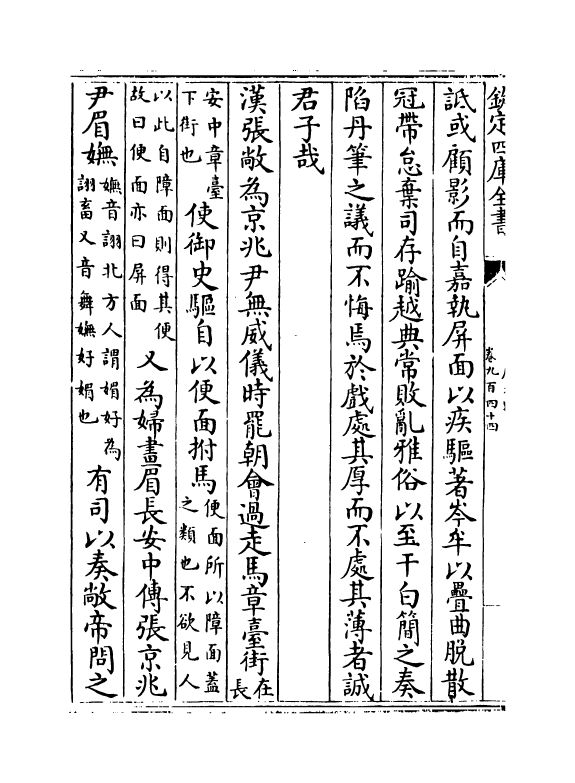 欽定四庫全書
卷九百四十四
詆或顧影而自嘉執屏面以疾驅著岑牟以疊曲脱散
冠帶怠棄司存踰越典常敗亂雅俗以至干白簡之奏
陷丹筆之議而不悔焉於戲處其厚而不處其薄者誠
君子哉
漢張敞為京兆尹無威儀時罷朝會過走馬章臺街在長
安中章臺下街也使御史驅自以便面拊馬便面所以障面蓋之類也不欲見人
以此自障面則得其便故曰便面亦曰屏面又為婦畫眉長安中傳張京兆
尹眉嫵嫵音詡北方人謂媚好為詡畜又音舞嫵好媚也有司以奏敞帝問之